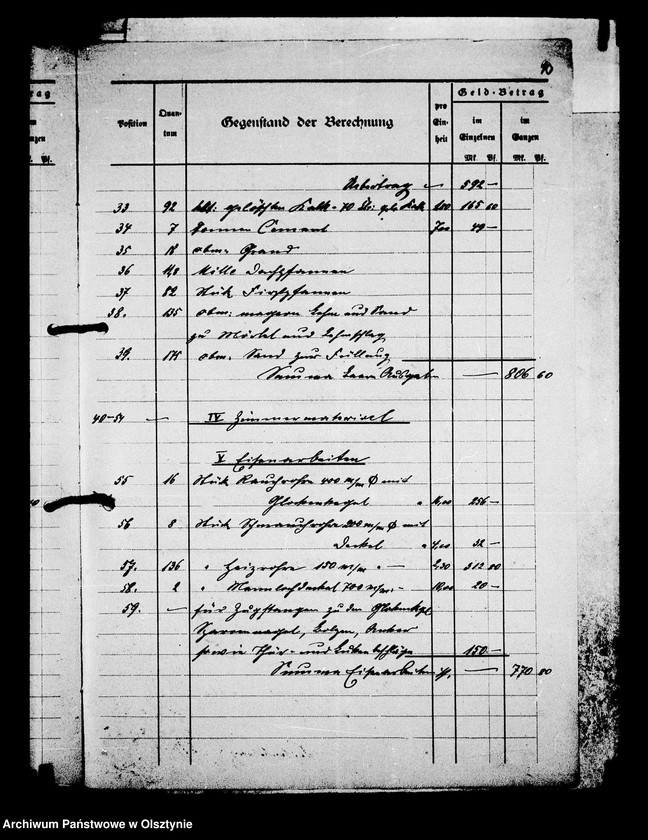 90
rag
Geld-Betrag
Position Quan-tum Gegenstand der Berechnung pro Ein-heit im Einzelnen im Ganzen
Mk. Pf. Mk. Pf.
Uebertrag 592 –
33 92 gelöschten Kalk = 70 165 60
34 7 Tonnen Cement 7,00 49 –
35 18 cbm: Grand
36 Mille Dachpfannen
37 82 Stück Firstpfannen
38. 135 cbm: magern Lehm und Sand
zu Mörtel und Lehmschlag
39. 175 cbm: Sand zur Füllung
Summa baare Ausgabe – 806 60
40-54 – IV Zimmermaterial
V Eisenarbeiten
55 16 Stück Rauchrohre 400 m/m Ø mit
Glockenkegel " 16,00 256 –
56 8 Stück Schmauchrohre 200 m/m Ø mit
Deckel " 4,00 32 –
57. 136 " Heizrohre 150 m/m " – 2,30 312 80
58. 2 " Mannlochdeckel 700 m/m: – 10,00 20 –
59. – für Zugstangen zu den
Bolzen, Anker
sowie Thür- und Lukenbeschläge 150 –
Summa Eisenarbeiten – 770 80
Archiwum Państwowe w Olsztynie